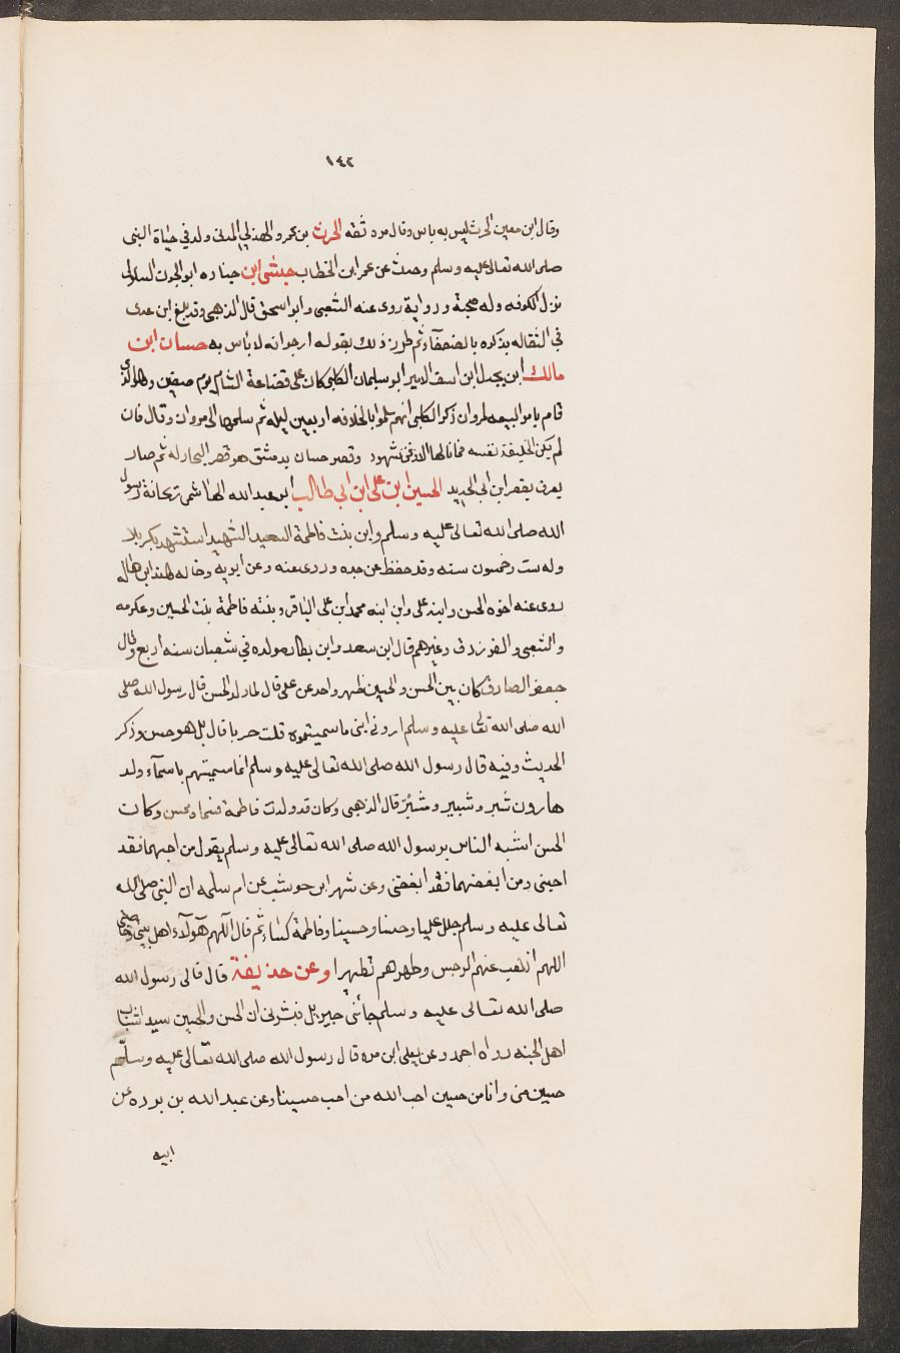 ١٤٢
وقال ابن معين الحرث ليس به باس وقال مرة ثقه الحرث بن عمرو الهذلي المدنى ولد في حياة النبى
صلى الله تعالى عليه وسلم وحدث عن عمر ابن الخطاب حبشى ابن جناده ابو الجنوب السلولى
نزل الكوفه وله صحبة ورواية روى عنه الشعبى وابو اسحق قال الذهبى وقد بلغ ابن عدى
في الثقاله بذكره بالضعفآء ثم طرز ذلك بقوله ارجوانه لا بأس به حسان ابن
مالك ابن بجدل ابن انيف الامير ابو سليمان الكلبى كان على قضاعة الشام يوم صفين وهو الذى
قام بامر البيعه لمروان ذكر الكلبى انهم سلموا بالخلافه اربعين ليله ثم سلمها الى مروان وقال فان
لم يكن الخليفة نفسه فما نالها الا ونحن شهود وقصر حسان بدمشق هو قصر البحادله ثم صار
يعرف بقصر ابن ابى الحديد الحسين ابن على ابن ابي طالب ابو عبد الله الهاشمى ريحانة رسول
الله صلى الله تعالى عليه وسلم وابن بنت فاطمة السعيد الشهيد استشهد بكربلا
وله ست وخمسون سنه وقد حفظ عن جده وروى عنه وعن ابويه وخاله هند ابن هاله
روى عنه اخوه الحسن وابنه على وابن ابنه محمد ابن على الباقر وبنته فاطمة بنت الحسين وعكرمه
والشعبى والفرزدق وغيرهم قال ابن سعد وابن بكار مولده في شعبان سنه اربع وقال
جعفر الصادق كان بين الحسن والحسين طهر واحد عن على قال لما ولد الحسن قال رسول الله صلى
الله صلى الله تعالى عليه وسلم ارونى ابنى ما سميتموه قلت حربا قال بل هو حسن وذكر
الحديث وفيه قال رسول الله صلى الله تعالى عليه وسلم انما سميتهم باسمآء ولد
هارون شبر وشبير ومشبر قال الذهبى وكان قد ولدت فاطمة فسما ومحسن وكان
الحسن اشبه الناس برسول الله صلى الله تعالى عليه وسلم يقول من احبهما فقد
احبنى ومن ابغضهما فقد ابغضنى وعن شهر ابن حوشب عن ام سلمه ان النبى صلى الله
تعالى عليه وسلم جلل عليا وحسنا وحسينا وفاطمة كساء ثم قال اللهم هولآء اهل بيتى وخاصتى
اللهم اذهب عنهم الرجس وطهرهم تطهيرا وعن حذيفة قال قال لى رسول الله
صلى الله تعالى عليه وسلم جآئنى جبريل فبشرنى ان الحسن والحسين سيد اشباب
اهل الجنه رواه احمد وعن يعلى ابن مره قال رسول الله صلى الله تعالى عليه وسلم
حسين منى وانا من حسين احب الله من احب حسينا وعن عبد الله بن بريده عن
ابيه